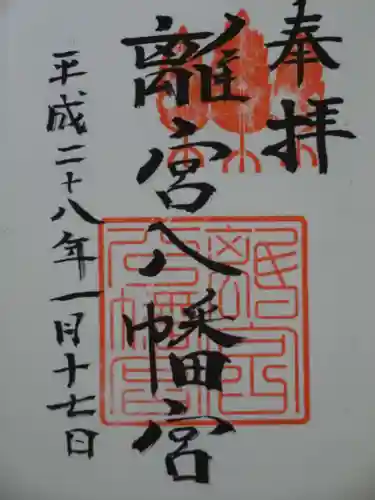 奉拝
離宮八幡宮
平成二十八年一月十七日
離宮八幡宮